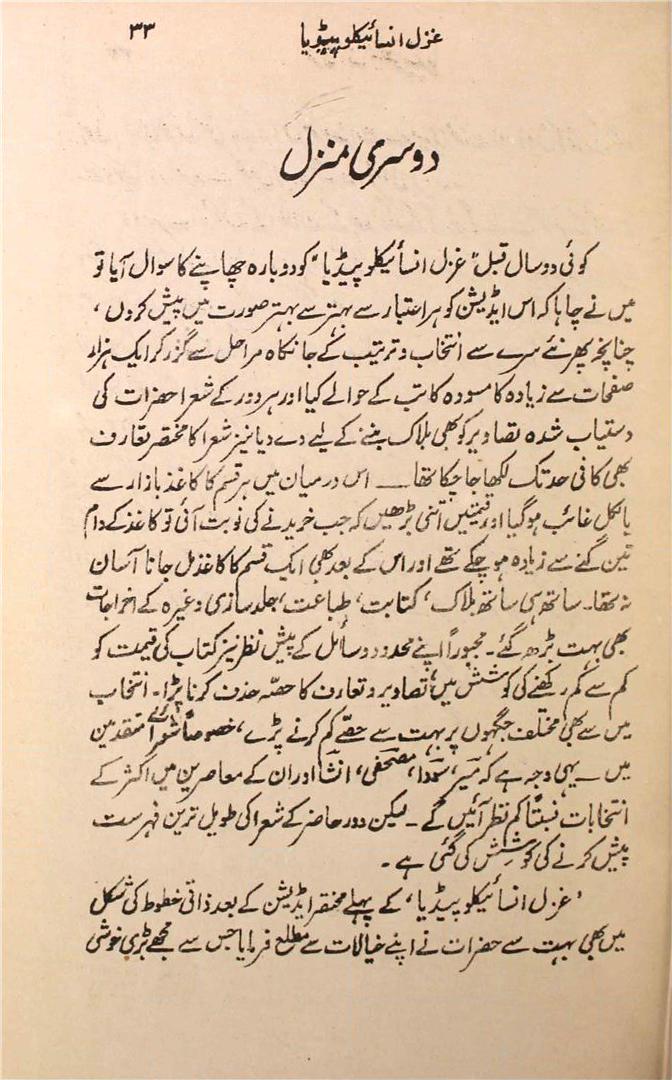 غزل انسائیکلوپیڈیا ۳۳
دوسری منزل
کوئی دو سال قبل "غزل انسائیکلوپیڈیا" کو دوبارہ چھاپنے کا سوال آیا تو
میں نے چاہا کہ اس ایڈیشن کو ہر اعتبار سے بہتر سے بہتر صورت میں پیش کردوں،
چنانچہ پھر نئے سرے سے انتخاب و ترتیب کے جانکاہ مراحل سے گزر کر ایک ہزار
صفحات سے زیادہ کا مسودہ کاتب کے حوالے کیا اور ہر دور کے شعرا حضرات کی
دستیاب شدہ تصاویر کو بھی بلاک بننے کے لیے دے دیا نیز شعرا کا مختصر تعارف
بھی کافی حد تک لکھا جا چکا تھا ــــ اس درمیان میں ہر قسم کا کاغذ بازار سے
بالکل غائب ہوگیا اور قیمتیں اتنی بڑھیں کہ جب خریدنے کی نوبت آئی تو کاغذ کے دام
تین گنے سے زیادہ ہو چکے تھے اور اس کے بعد بھی ایک قسم کا کاغذ مل جانا آسان
نہ تھا۔ ساتھ ہی ساتھ بلاک، کتابت، طباعت، جلد سازی وغیرہ کے اخراجات
بھی بہت بڑھ گئے۔ مجبوراً اپنے محدود وسائل کے پیش نظر نیز کتاب کی قیمت کو
کم سے کم رکھنے کی کوشش میں، تصاویر و تعارف کا حصّہ حذف کرنا پڑا۔ انتخاب
میں سے بھی مختلف جگہوں پر بہت سے حصے کم کرنے پڑے، خصوصاً شعرائے متقدمین
میں ــ یہی وجہ ہے کہ میرؔ، سوداؔ، مصحفیؔ، انشاؔ اور ان کے معاصرین میں اکثر کے
انتخابات نسبتاً کم نظر آئیں گے ۔ لیکن دور حاضر کے شعرا کی طویل ترین فہرست
پیش کرنے کی کوشش کی گئی ہے ۔
'غزل انسائیکلوپیڈیا' کے پہلے مختصر ایڈیشن کے بعد ذاتی خطوط کی شکل
میں بھی بہت سے حضرات نے اپنے خیالات سے مطلع فرمایا جس سے مجھے بڑی خوشی